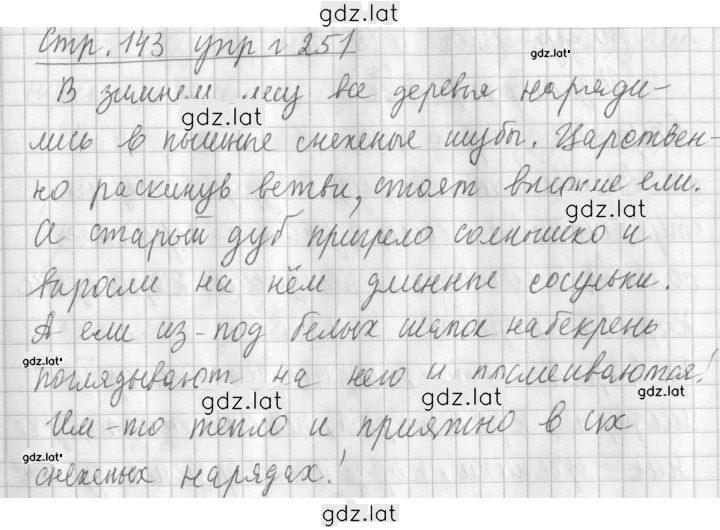 gdz.lat
Стр. 143 упр г 251
gdz.lat
В зимнем лесу все деревья наряди-
gdz.lat
лись в пышные снежные шубы. Царствен-
но раскинув ветви, стоят высокие ели.
gdz.lat
А старый дуб пригрело солнышко и
выросли на нём длинные сосульки.
А ели из-под белых шапок набекрень
gdz.lat
поглядывают на него и посмеиваются!
gdz.lat gdz.lat gdz.lat
Им-то тепло и приятно в их
gdz.lat
снежных нарядах!
gdz.lat
gdz.lat